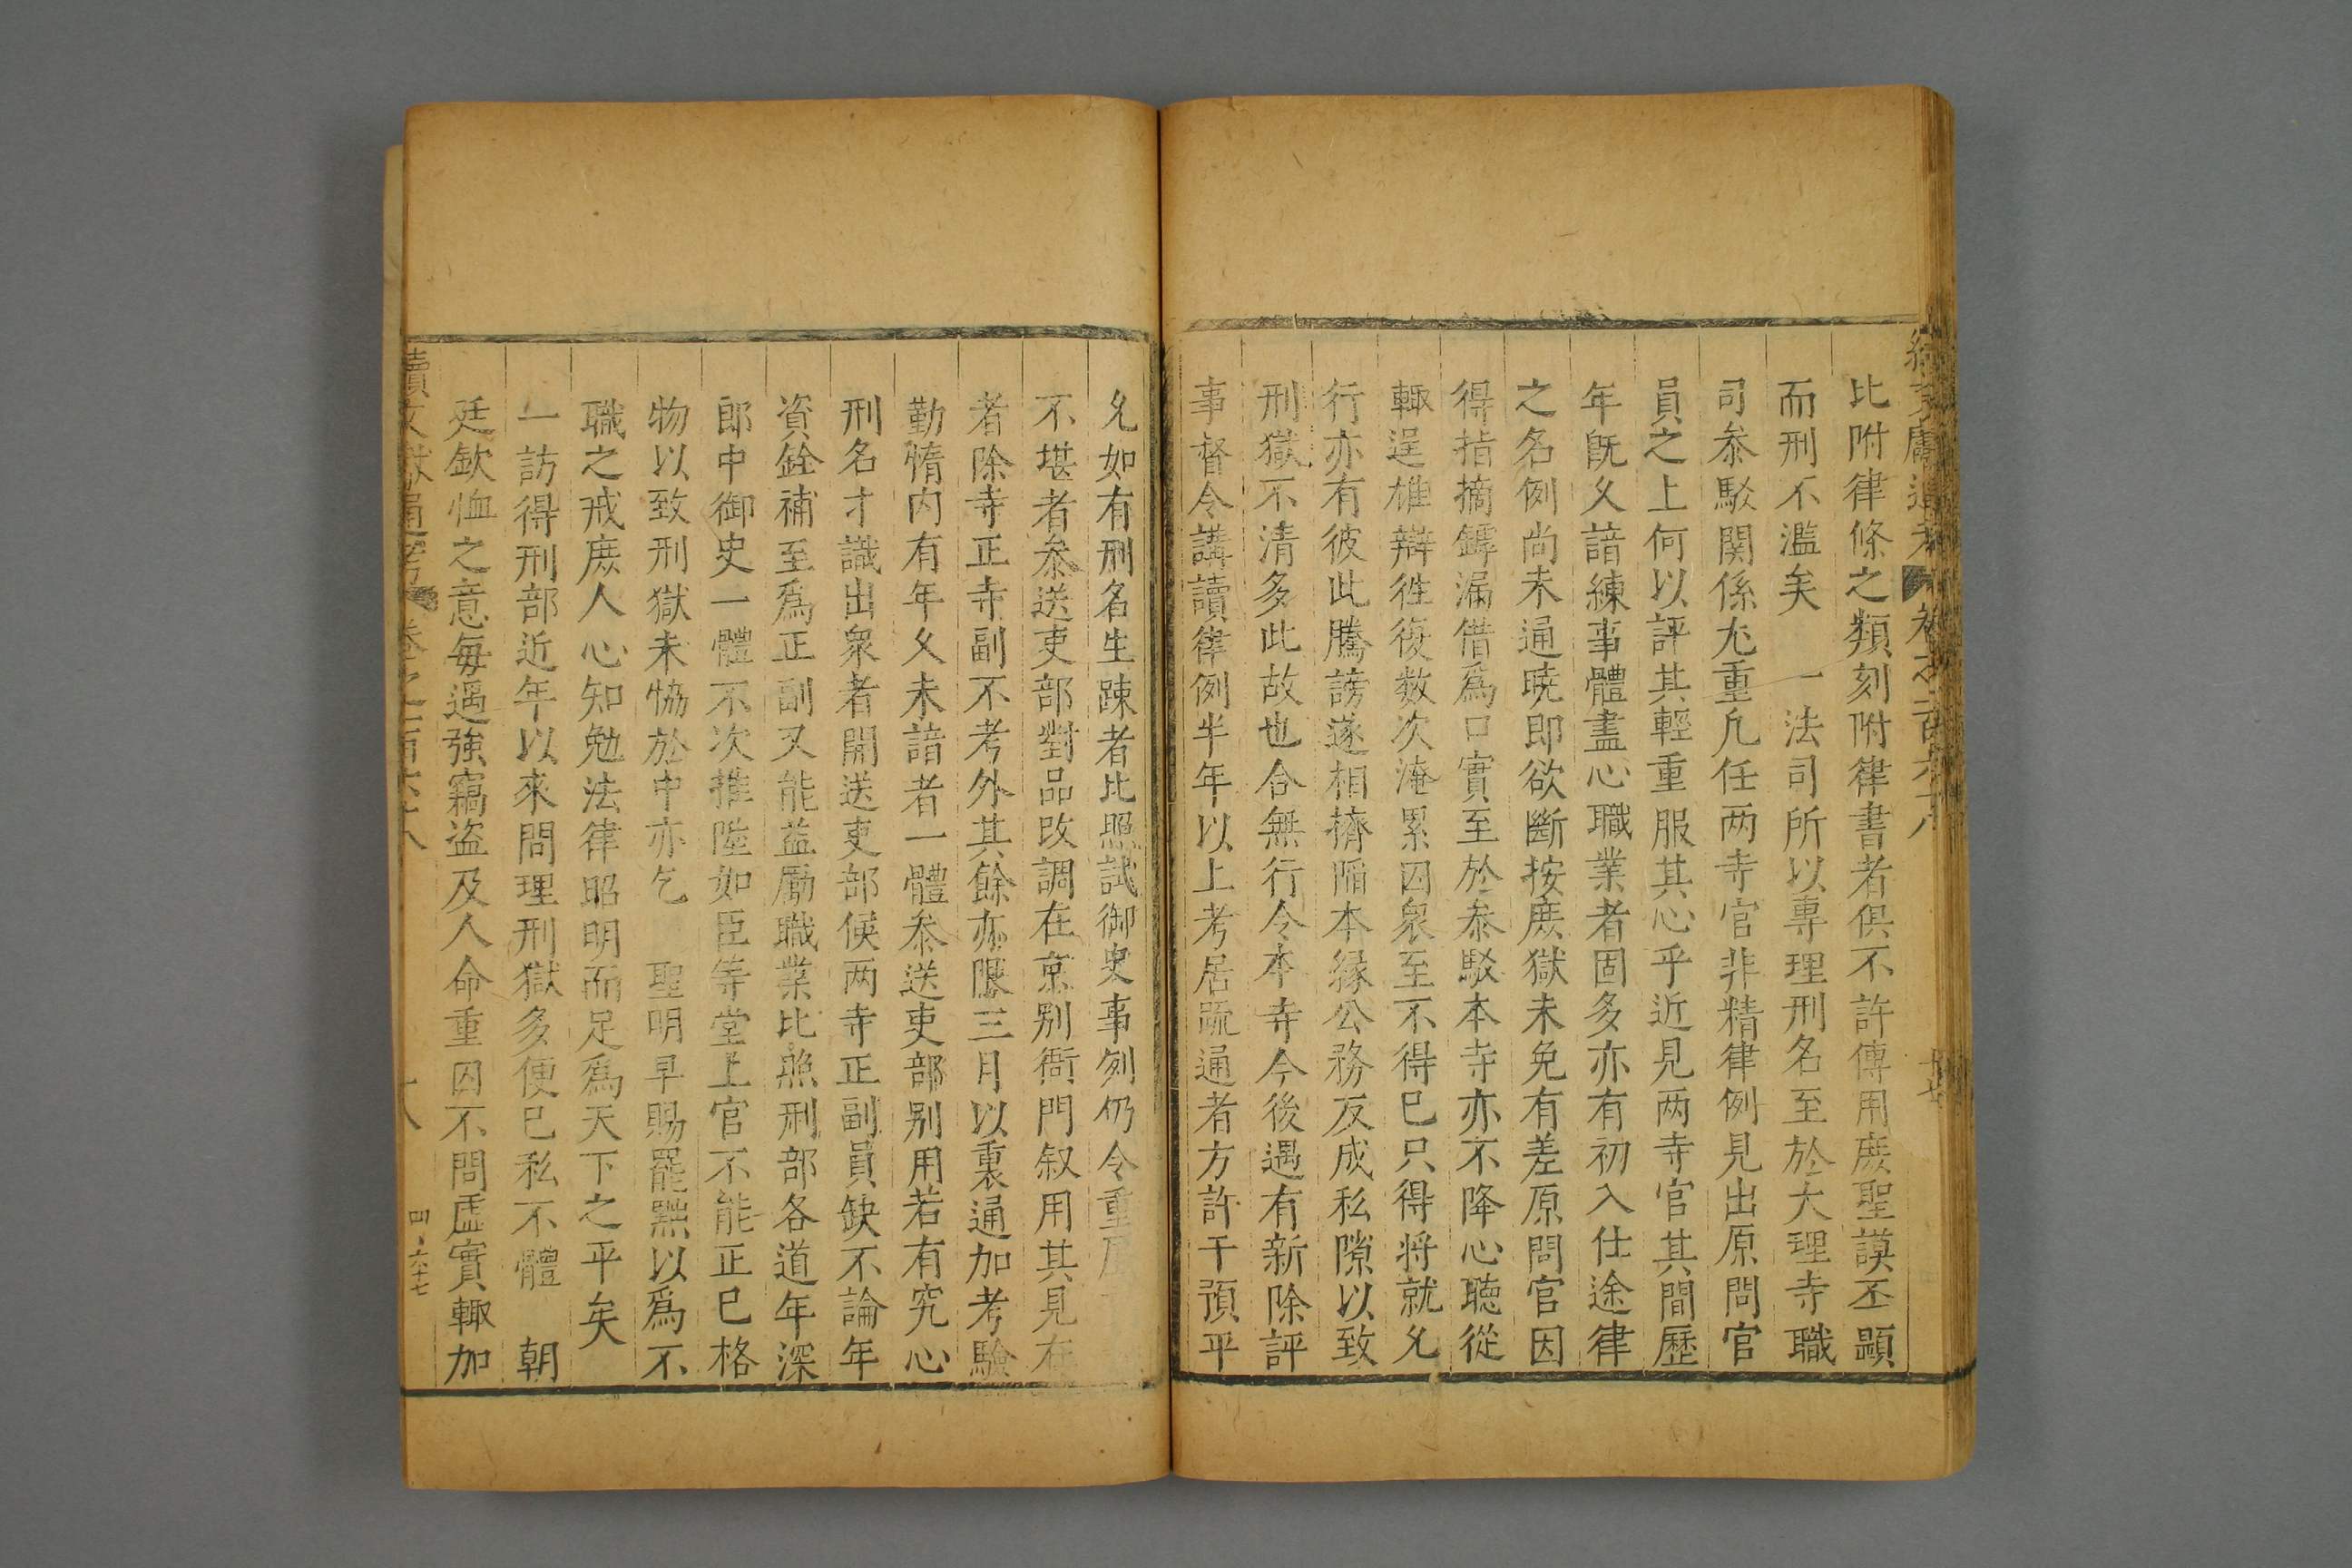 續文獻通考 卷之一百六十八 十七
比附律條之類刻附律書者俱不許傳用庶聖謨丕顯
而刑不濫矣 一法司所以專理刑名至於大理寺職
司叅駁関係尤重凡任两寺官非精律例見出原問官
員之上何以評其輕重服其心乎近見两寺官其間歷
年旣久諳練事體盡心職業者固多亦有初入仕途律
之名例尚未通曉即欲斷按庶獄未免有差原問官因
得指摘罅漏借爲口實至於叅駁本寺亦不降心聽從
輙逞雄辯徃復数次淹累囚衆至不得已只得将就允
行亦有彼此騰謗遂相擠陥本縁公務反成私隙以致
刑獄不清多此故也合無行令本寺今後遇有新除評
事督令講讀律例半年以上考居疏通者方許干預平
允如有刑名生踈者比照試御史事例仍令重
不堪者叅送吏部對品改調在京别衙門叙用其見在
者除寺正寺副不考外其餘亦限三月以裏通加考驗
勤惰内有年久未諳者一體叅送吏部别用若有究心
刑名才識出衆者開送吏部候两寺正副員缺不論年
資銓補至爲正副又能益勵職業比照刑部各道年深
郎中御史一體不次推陞如臣等堂上官不能正已格
物以致刑獄未恊於中亦乞 聖明早賜罷黜以爲不
職之戒庶人心知勉法律昭明而足爲天下之平矣
一訪得刑部近年以來問理刑獄多便已私不體 朝
廷欽恤之意每遇強竊盗及人命重囚不問虗實輙加
續文獻通考 卷之一百六十八 十八
四·六十七